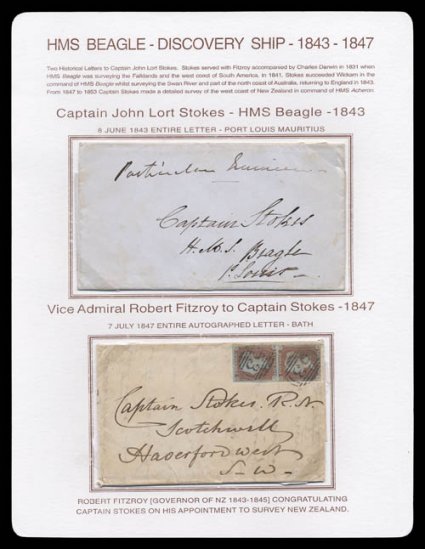 HMS BEAGLE - DISCOVERY SHIP - 1843 - 1847
Two Historical Letters to Captain John Lort Stokes. Stokes served with Fitzroy accompanied by Charles Darwin in 1831 when
HMS Beagle was surveying the Falklands and the west coast of South America, in 1841, Stokes succeeded Wickam in the
command of HMS Beagle whilst surveying the Swan River and part of the north coast of Australia, returning to England in 1843.
From 1847 to 1853 Captain Stokes made a detailed survey of the west coast of New Zealand in command of HMS Acheron.
Captain John Lort Stokes - HMS Beagle -1843
8 JUNE 1843 ENTIRE LETTER - PORT LOUIS MAURITIUS
Captain Stokes
H.M.S. Beagle
P. Louis
Vice Admiral Robert Fitzroy to Captain Stokes -1847
7 JULY 1847 ENTIRE AUTOGRAPHED LETTER - BATH
Captain Stokes. R.N.
Scotchwell
Haverfordwest
S-W-
ROBERT FITZROY [GOVERNOR OF NZ 1843-1845] CONGRATULATING
CAPTAIN STOKES ON HIS APPOINTMENT TO SURVEY NEW ZEALAND.